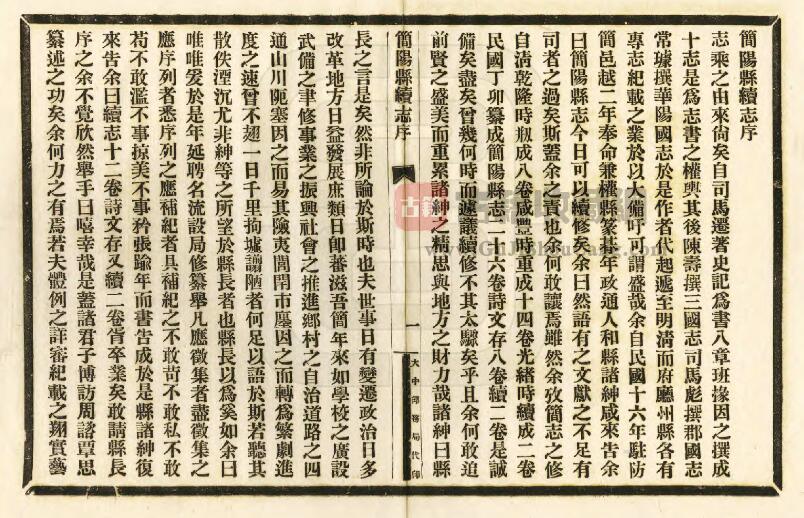 簡陽縣續志序
志乘之由來尙矣自司馬遷著史記爲書八章班掾因之撰成
十志是爲志書之權輿其後陳壽撰三國志司馬彪撰郡國志
常璩撰華陽國志於是作者代起遞至明清而府廳州縣各有
專志紀載之業於以大備吁可謂盛哉余自民國十六年駐防
簡邑越二年奉命兼權縣篆朞年政通人和縣諸紳咸來告余
曰簡陽縣志今日可以續修矣余曰然語有之文獻之不足有
司者之過矣斯蓋余之責也余何敢讓焉雖然余攷簡志之修
自清乾隆時成八卷咸豐時重成十四卷光緒時續成二卷
民國丁卯纂成簡陽縣志二十六卷詩文存八卷續二卷是誠
備矣盡矣曾幾何時而遽議續修不其太驟矣乎且余何敢追
前賢之盛美而重累諸紳之精思與地方之財力哉諸紳曰縣
簡陽縣續志序
一
大中印務局代印
長之言是矣然非所論於斯時也夫世事日有變遷政治日多
改革地方日益發展庶類日卽蕃滋吾簡年來如學校之廣設
武備之聿修事業之振興社會之推進鄉村之自治道路之四
通山川阨塞因之而易其險夷閭閈市廛因之而轉爲繁劇進
度之速曾不翅一日千里拘墟謭陋者何足以語於斯若聽其
散佚湮沉尤非紳等之所望於縣長者也縣長以爲奚如余曰
唯唯爰於是年延聘名流設局修纂舉凡應徵集者盡徵集之
應序列者悉序列之應補紀者具補紀之不敢苟不敢私不敢
苟不敢濫不事掠美不事矜張踰年而書告成於是縣諸紳復
來告余曰續志十二卷詩文存又續二卷皆卒業矣敢請縣長
序之余不覺欣然舉手曰嘻幸哉是蓋諸君子博訪周諮覃思
纂述之功矣余何力之有焉若夫體例之詳審紀載之翔實藝
古籍